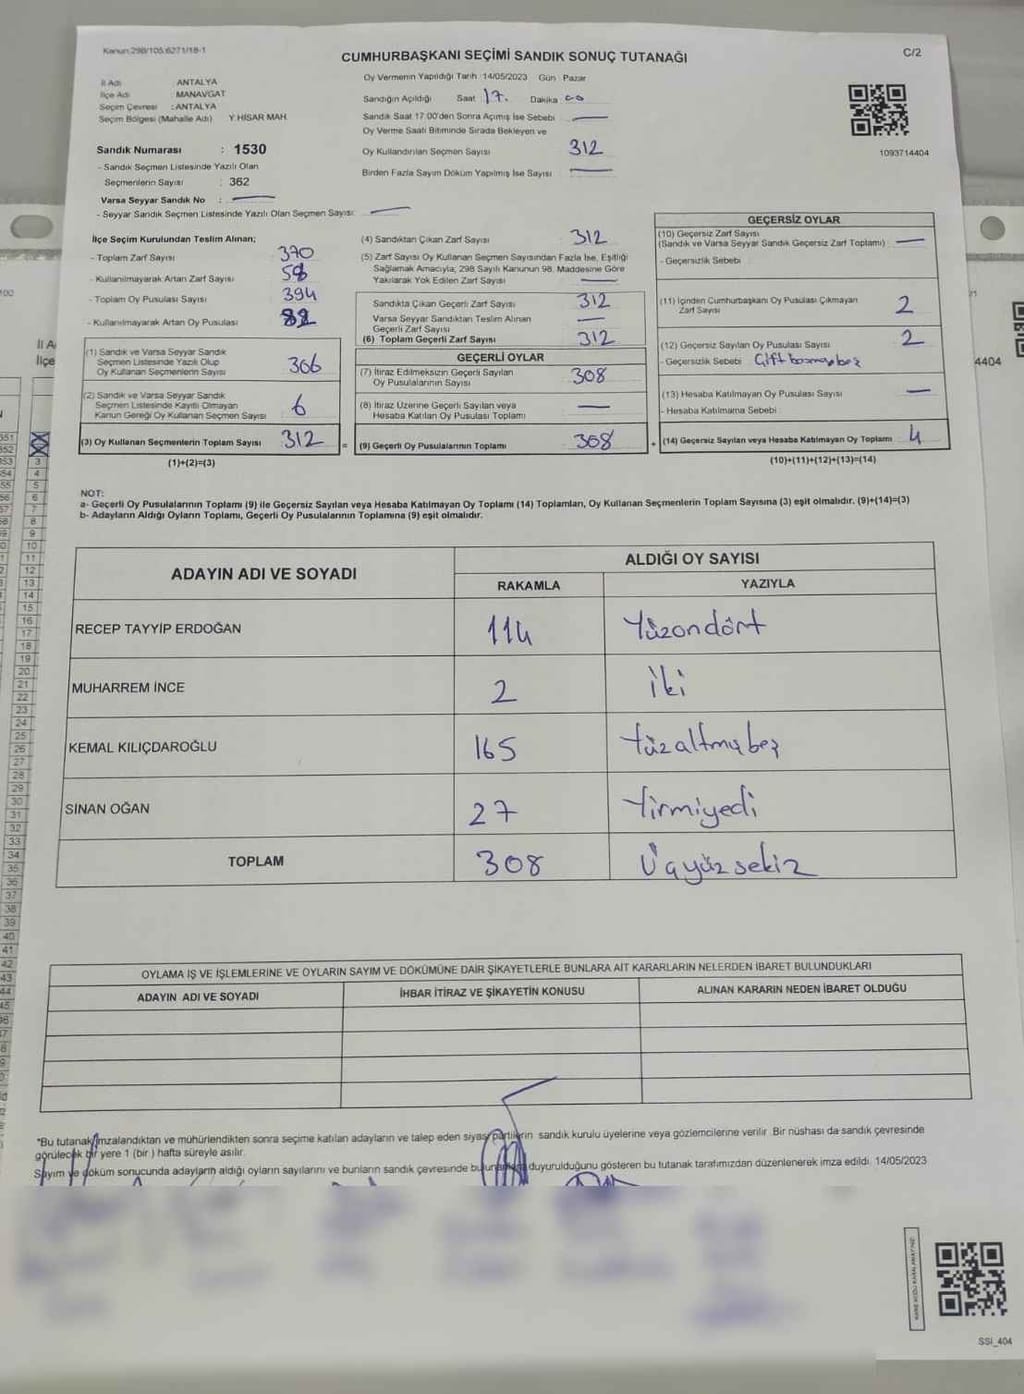 Kanun:298/105.6271/18-1
CUMHURBAŞKANI SEÇİMİ SANDIK SONUÇ TUTANAĞI
C/2
İl Adı ANTALYA
İlçe Adı MANAVGAT
Seçim Çevresi : ANTALYA
Seçim Bölgesi (Mahalle Adı) Y.HİSAR MAH.
Oy Vermenin Yapıldığı Tarih 14/05/2023 Gün Pazar
Sandığın Açıldığı Saat 17. Dakika 00
Sandık Saat 17.00'den Sonra Açımış İse Sebebi
Oy Verme Saati Bitiminde Sırada Bekleyen ve
Oy Kullandırılan Seçmen Sayısı 312
Birden Fazla Sayım Döküm Yapılmış İse Sayısı
1093714404
Sandık Numarası : 1530
- Sandık Seçmen Listesinde Yazılı Olan
Seçmenlerin Sayısı : 362
Varsa Seyyar Sandık No :
- Seyyar Sandık Seçmen Listesinde Yazılı Olan Seçmen Sayısı:
İlçe Seçim Kurulundan Teslim Alınan;
- Toplam Zarf Sayısı 370
- Kullanılmayarak Artan Zarf Sayısı 58
- Toplam Oy Pusulası Sayısı 394
- Kullanılmayarak Artan Oy Pusulası 82
(1) Sandık ve Varsa Seyyar Sandık
Seçmen Listesinde Yazılı Olup
Oy Kullanan Seçmenlerin Sayısı 306
(2) Sandık ve Varsa Seyyar Sandık
Seçmen Listesinde Kayıtlı Olmayan
Kanun Gereği Oy Kullanan Seçmen Sayısı 6
(3) Oy Kullanan Seçmenlerin Toplam Sayısı 312 =
(1)+(2)=(3)
(4) Sandıktan Çıkan Zarf Sayısı 312
(5) Zarf Sayısı Oy Kullanan Seçmen Sayısından Fazla İse, Eşitliği
Sağlamak Amacıyla; 298 Sayılı Kanunun 98. Maddesine Göre
Yakılarak Yok Edilen Zarf Sayısı
Sandıkta Çıkan Geçerli Zarf Sayısı 312
Varsa Seyyar Sandıktan Teslim Alınan
Geçerli Zarf Sayısı
(6) Toplam Geçerli Zarf Sayısı 312
GEÇERLİ OYLAR
(7) İtiraz Edilmeksizin Geçerli Sayılan
Oy Pusulalarının Sayısı 308
(8) İtiraz Üzerine Geçerli Sayılan veya
Hesaba Katılan Oy Pusulası Toplamı
(9) Geçerli Oy Pusulalarının Toplamı 308 +
GEÇERSİZ OYLAR
(10) Geçersiz Zarf Sayısı
(Sandık ve Varsa Seyyar Sandık Geçersiz Zarf Toplamı)
- Geçersizlik Sebebi
(11) İçinden Cumhurbaşkanı Oy Pusulası Çıkmayan
Zarf Sayısı 2
(12) Geçersiz Sayılan Oy Pusulası Sayısı 2
- Geçersizlik Sebebi Çift
(13) Hesaba Katılmayan Oy Pusulası Sayısı
- Hesaba Katılmama Sebebi
(14) Geçersiz Sayılan veya Hesaba Katılmayan Oy Toplamı 4
(10)+(11)+(12)+(13)=(14)
NOT:
a- Geçerli Oy Pusulalarının Toplamı (9) ile Geçersiz Sayılan veya Hesaba Katılmayan Oy Toplamı (14) Toplamları, Oy Kullanan Seçmenlerin Toplam Sayısına (3) eşit olmalıdır. (9)+(14)=(3)
b- Adayların Aldığı Oyların Toplamı, Geçerli Oy Pusulalarının Toplamına (9) eşit olmalıdır.
ADAYIN ADI VE SOYADI
ALDIĞI OY SAYISI
RAKAMLA YAZIYLA
RECEP TAYYİP ERDOĞAN 114 Yüzondört
MUHARREM İNCE 2 İki
KEMAL KILIÇDAROĞLU 165 Yüzaltmışbeş
SİNAN OĞAN 27 Yirmiyedi
TOPLAM 308 Üçyüzsekiz
OYLAMA İŞ VE İŞLEMLERİNE VE OYLARIN SAYIM VE DÖKÜMÜNE DAİR ŞİKAYETLERLE BUNLARA AİT KARARLARIN NELERDEN İBARET BULUNDUKLARI
ADAYIN ADI VE SOYADI İHBAR İTİRAZ VE ŞİKAYETİN KONUSU ALINAN KARARIN NEDEN İBARET OLDUĞU
*Bu tutanak imzalandıktan ve mühürlendikten sonra seçime katılan adayların ve talep eden siyasi partilerin sandık kurulu üyelerine veya gözlemcilerine verilir. Bir nüshası da sandık çevresinde
görülecek bir yere 1 (bir ) hafta süreyle asılır.
Sayım ve döküm sonucunda adayların aldığı oyların sayılarını ve bunların sandık çevresinde duyurulduğunu gösteren bu tutanak tarafımızdan düzenlenerek imza edildi. 14/05/2023
SSI_404